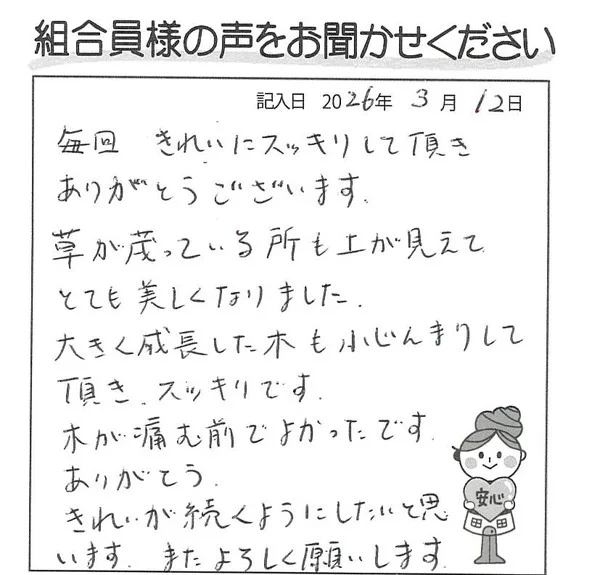 組合員様の声をお聞かせください
記入日 2026年 3月 12日
毎回 きれいにスッキリして頂き
ありがとうございます。
草が茂っている所も土が見えて
とても美しくなりました。
大きく成長した木も小じんまりして
頂き、スッキリです。
木が痛む前でよかったです。
ありがとう。
きれいが続くようにしたいと思
います。またよろしく願いします。
安心